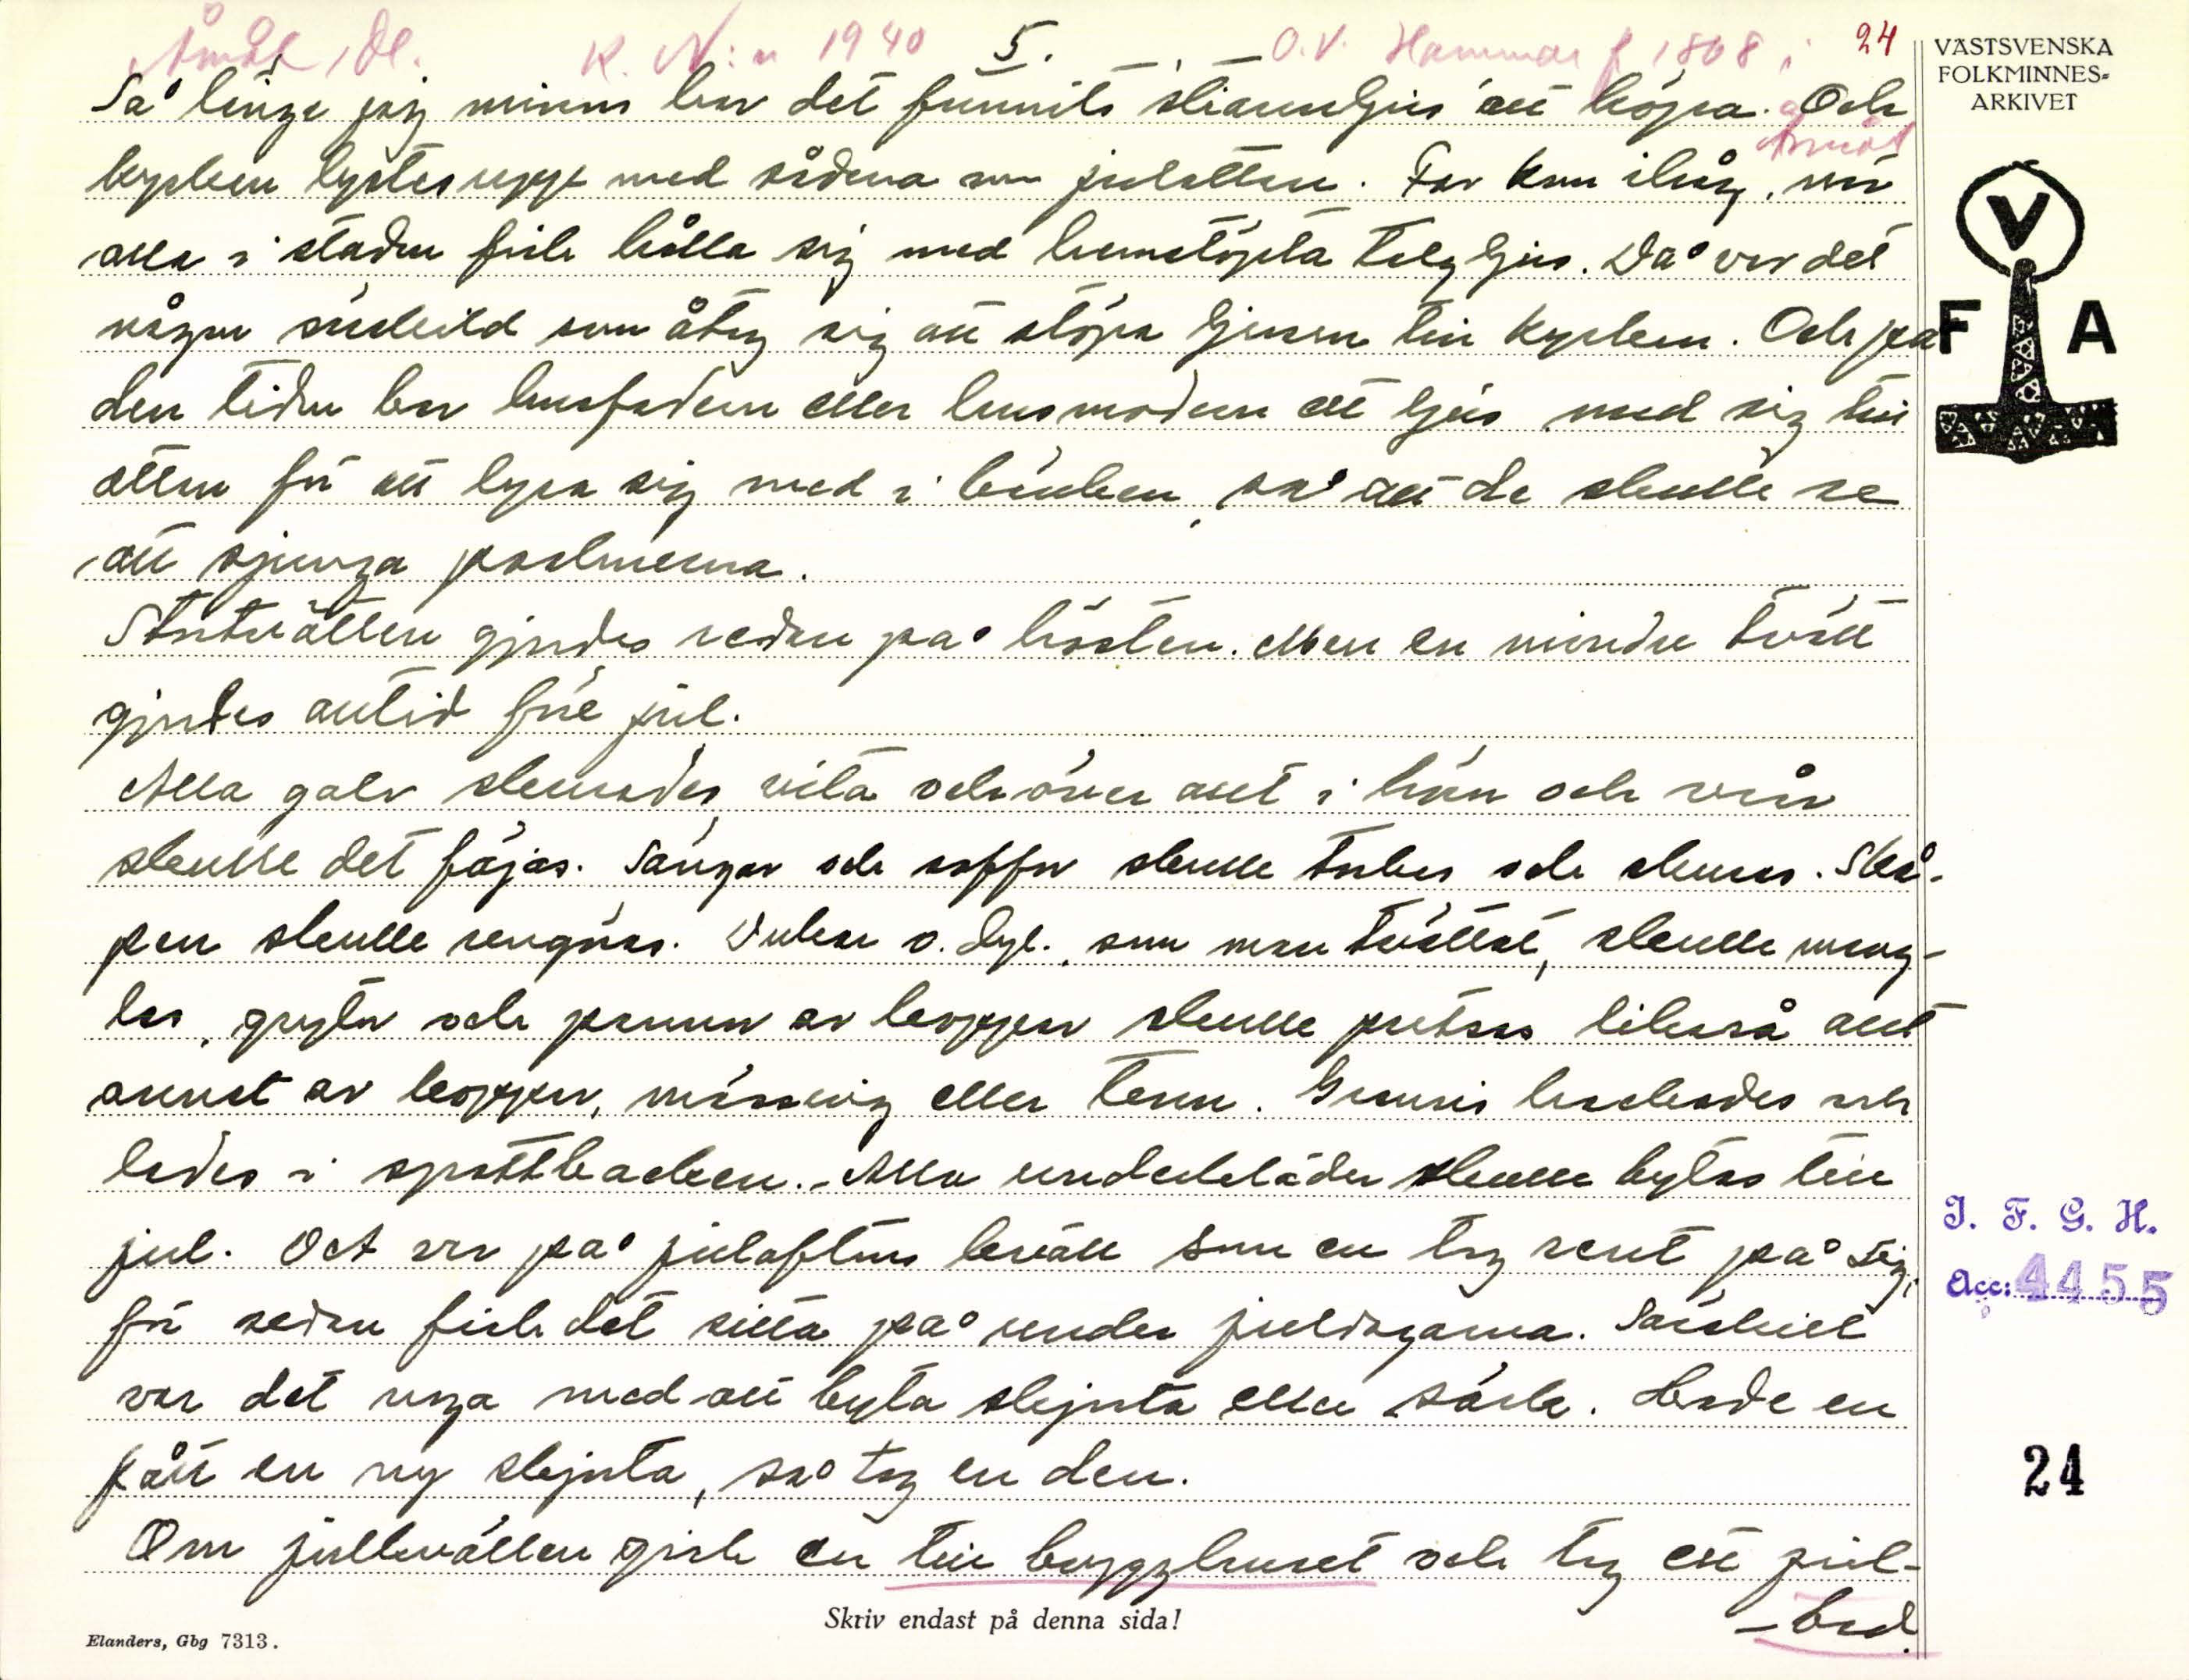 Åmål, Dl. K. N:n 1940 5. O.V. Hammar f 1868 i 24
Åmål
Så länge jag minns har det funnits stearinljus att köpa. Och
kyrkan lystes upp med sådana om julottan. Far kom ihåg, när
alla i staden fick hålla sig med hemstöpta talgljus. Då var det
någon särskild som åtog sig att stöpa ljusen till kyrkan. Och på
den tiden bar husfadern eller husmodern ett ljus med sig till
ottan för att lysa sig med i bänken, så att de skulle se
att sjunga psalmerna.
Stortvätten gjordes redan på hösten. Men en mindre tvätt
gjordes alltid före jul.
Alla golv skurades vita och över allt i hörn och vrår
skulle det fäjas. Sängar och soffor skulle torkas och skuras. Skå-
pen skulle rengöras. Dukar o. dyl., som man tvättat, skulle mang-
las, grytor och pannor av koppar skulle putsas likaså allt
annat av koppar, mässing eller tenn. Granris hackades och
lades i spottbacken. - Alla underkläder skulle bytas till
jul. Det var på julaftons kväll som en tog rent på sig,
för sedan fick det sitta på under juldagarna. Särskilt
var det noga med att byta skjorta eller särk. Hade en
fått en ny skjorta, så tog en den.
Om julkvällen gick en till brygghuset och tog ett jul-
-bad.
Skriv endast på denna sida!
Elanders, Gbg 7313.
VÄSTSVENSKA
FOLKMINNES-
ARKIVET
V
F A
I. F. G. H.
Acc: 4455
24